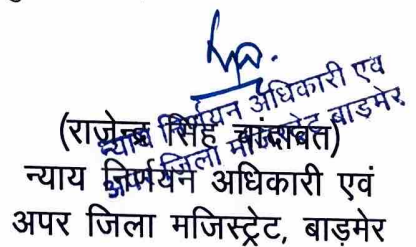 न्याय निर्णयन अधिकारी एव
अपर जिला मजिस्ट्रेट बाड़मेर
(राजेन्द्र सिंह चांदावत)
न्याय निर्णयन अधिकारी एवं
अपर जिला मजिस्ट्रेट, बाड़मेर